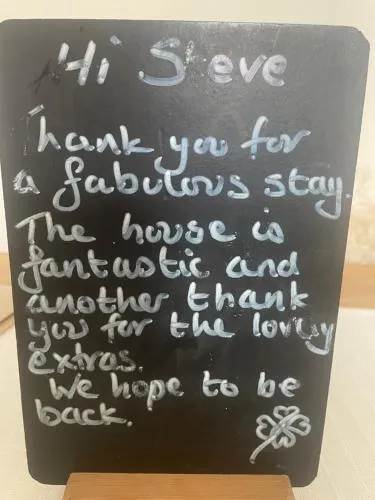 Hi Steve
Thank you for
a fabulous stay.
The house is
fantastic and
another thank
you for the lovely
extras.
We hope to be
back.